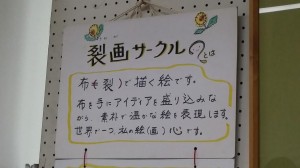 裂画サークル?とは
布(裂)で描く絵です。
布を手にアイディアを盛り込みな
がら、素朴で温かな絵を表現します。
世界で一つ、私の絵(画)心です。